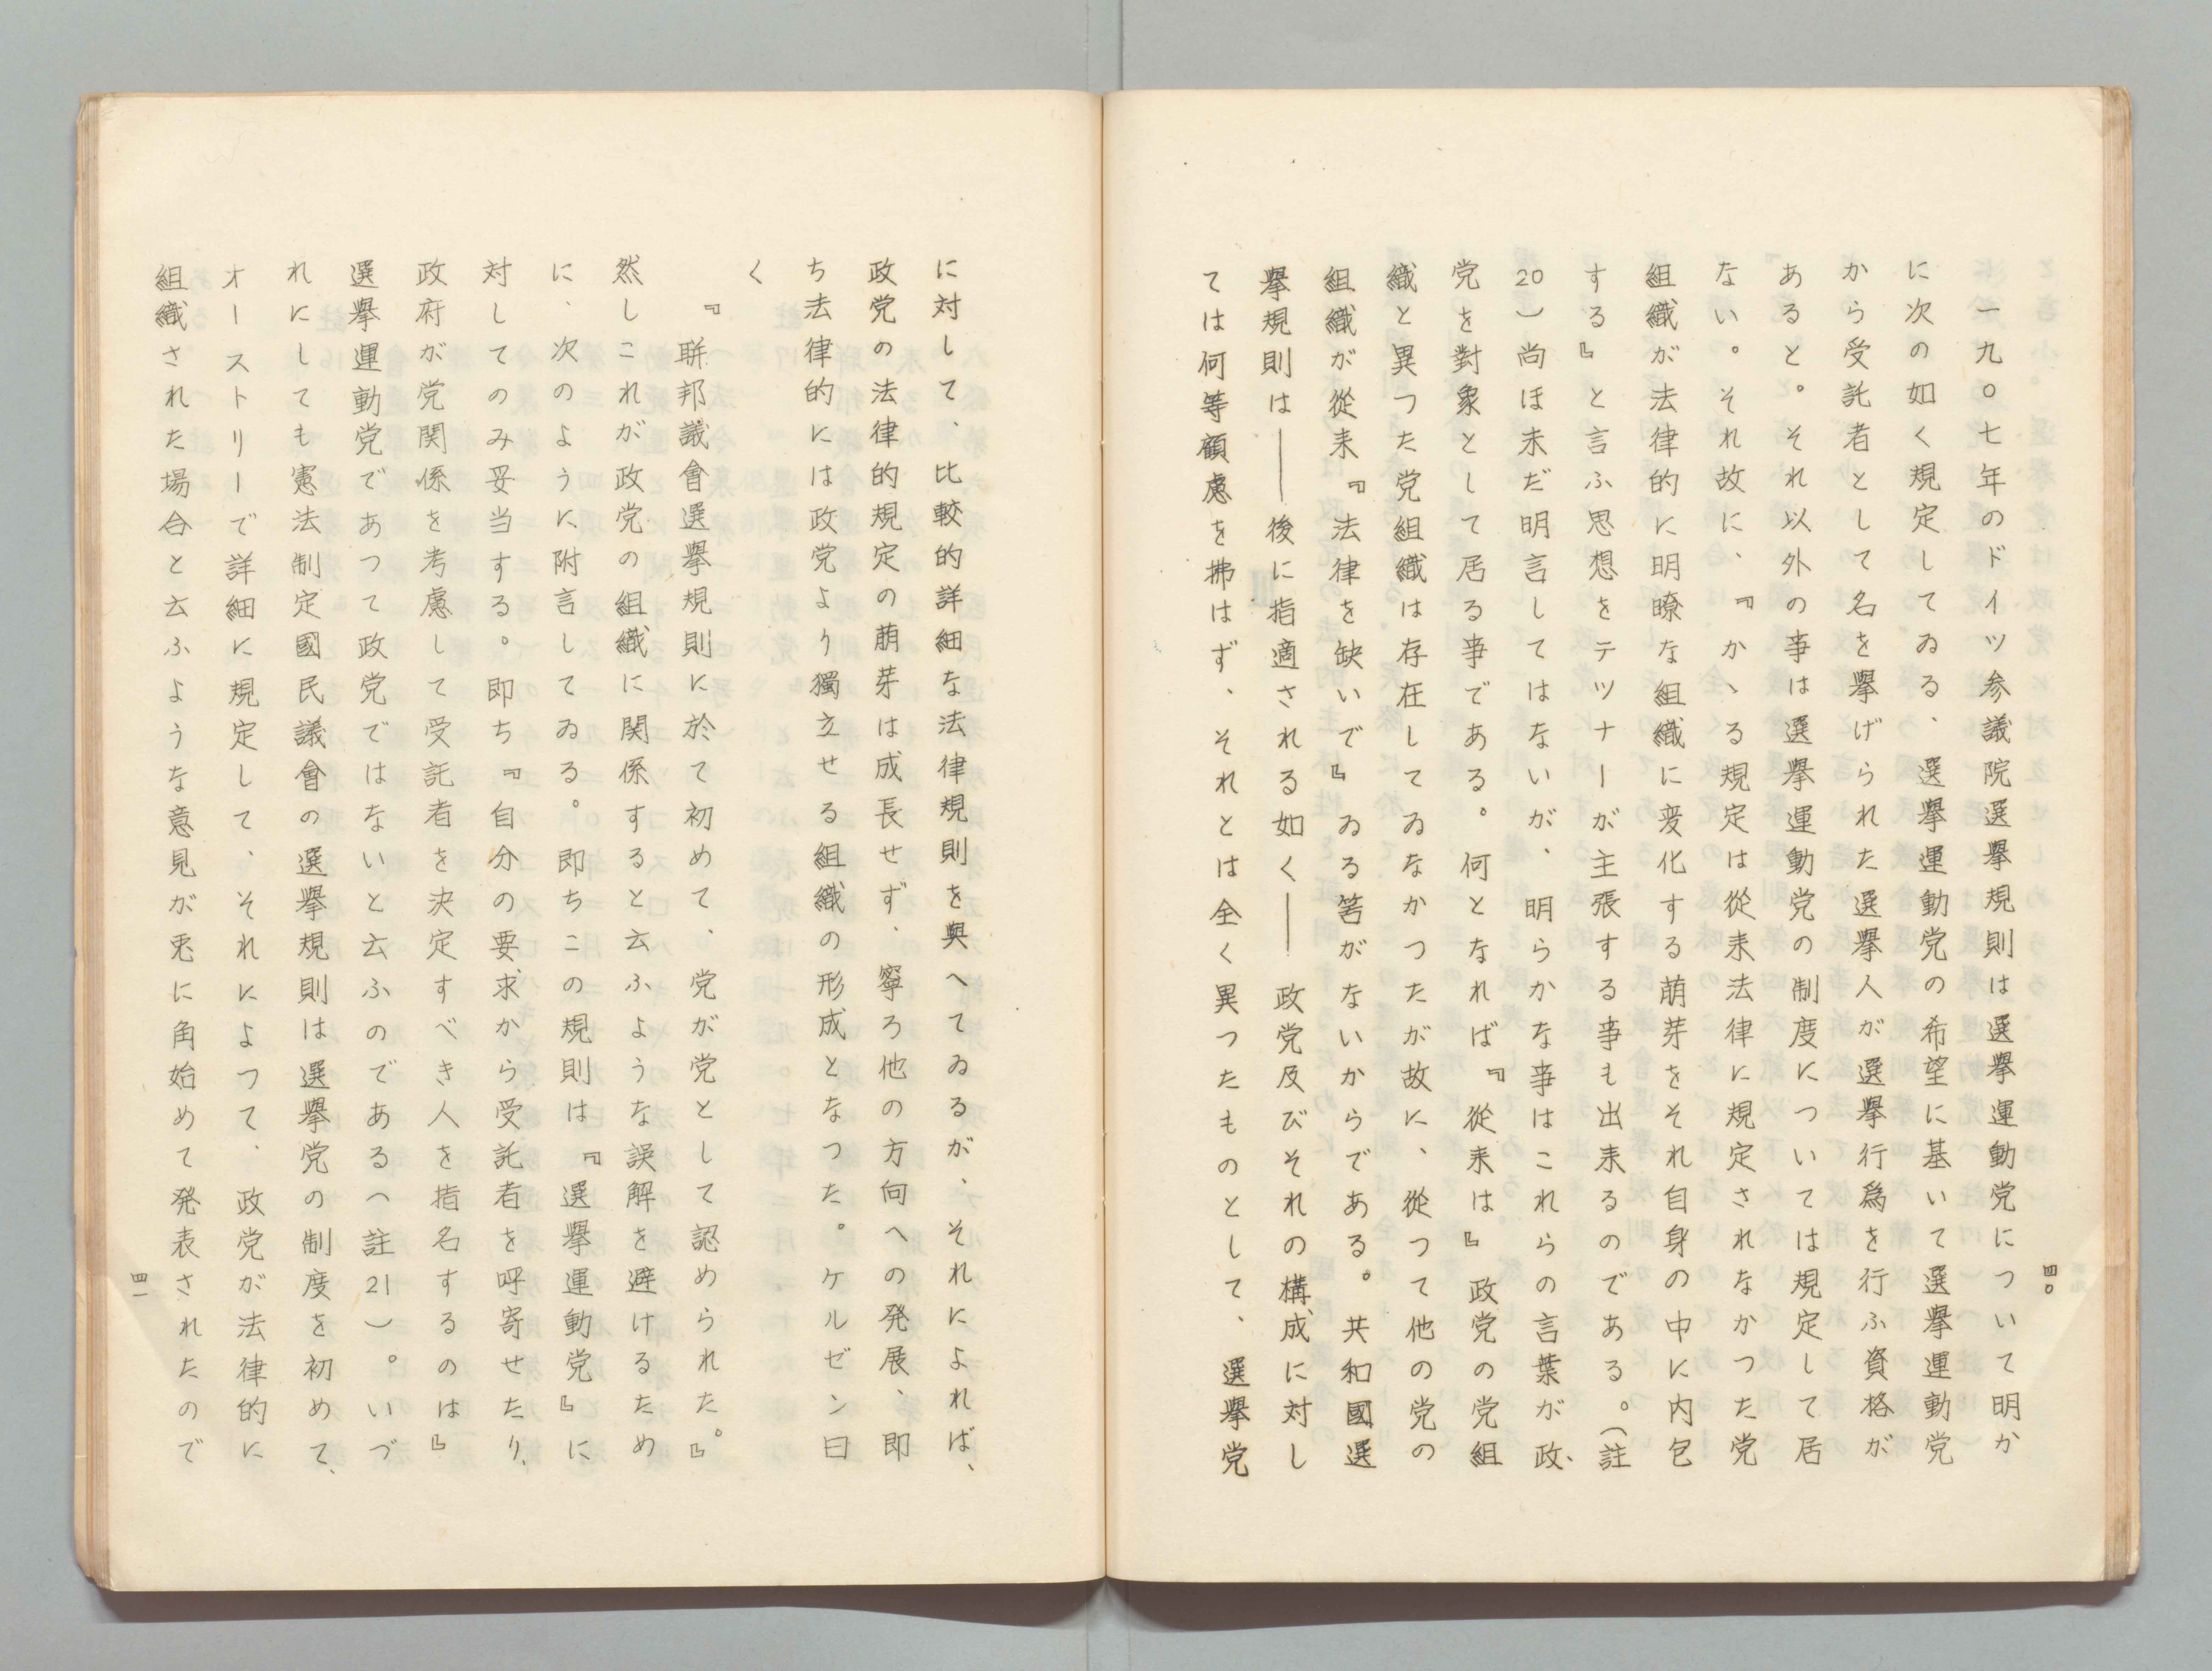 四〇
一九〇七年のドイツ参議院選擧規則は選擧運動党について明か
に次の如く規定してゐる、選擧運動党の希望に基いて選擧運動党
から受託者として名を擧げられた選擧人が選擧行爲を行ふ資格が
あると。それ以外の事は選擧運動党の制度については規定して居
ない。それ故に、『かゝる規定は從来法律に規定されなかつた党
組織が法律的に明瞭な組織に変化する萠芽をそれ自身の中に内包
する』と言ふ思想をテツナーが主張する事も出来るのである。(註
20)尚ほ未だ明言してはないが、明らかな事はこれらの言葉が政、
党を對象として居る事である。何となれば『從来は』政党の党組
織と異つた党組織は存在してゐなかつたが故に、從つて他の党の
組織が從来『法律を缺いで』ゐる筈がないからである。共和國選
擧規則は――後に指適される如く――政党及びそれの構成に対し
ては何等顧慮を拂はず、それとは全く異つたものとして、選擧党
に対して、比較的詳細な法律規則を與へてゐるが、それによれば、
政党の法律的規定の萠芽は成長せず、寧ろ他の方向への発展、即
ち法律的には政党より獨立せる組織の形成となつた。ケルゼン曰
く
『聨邦議會選擧規則に於て初めて、党が党として認められた。』
然しこれが政党の組織に関係すると云ふような誤解を避けるため
に、次のように附言してゐる。即ちこの規則は『選擧運動党』に
対してのみ妥当する。即ち『自分の要求から受託者を呼寄せたり、
政府が党関係を考慮して受託者を決定すべき人を指名するのは』
選擧運動党であつて政党ではないと云ふのである(註21)。いづ
れにしても憲法制定國民議會の選擧規則は選擧党の制度を初めて、
オーストリーで詳細に規定して、それによつて、政党が法律的に
組織された場合と云ふような意見が兎に角始めて発表されたので
四一